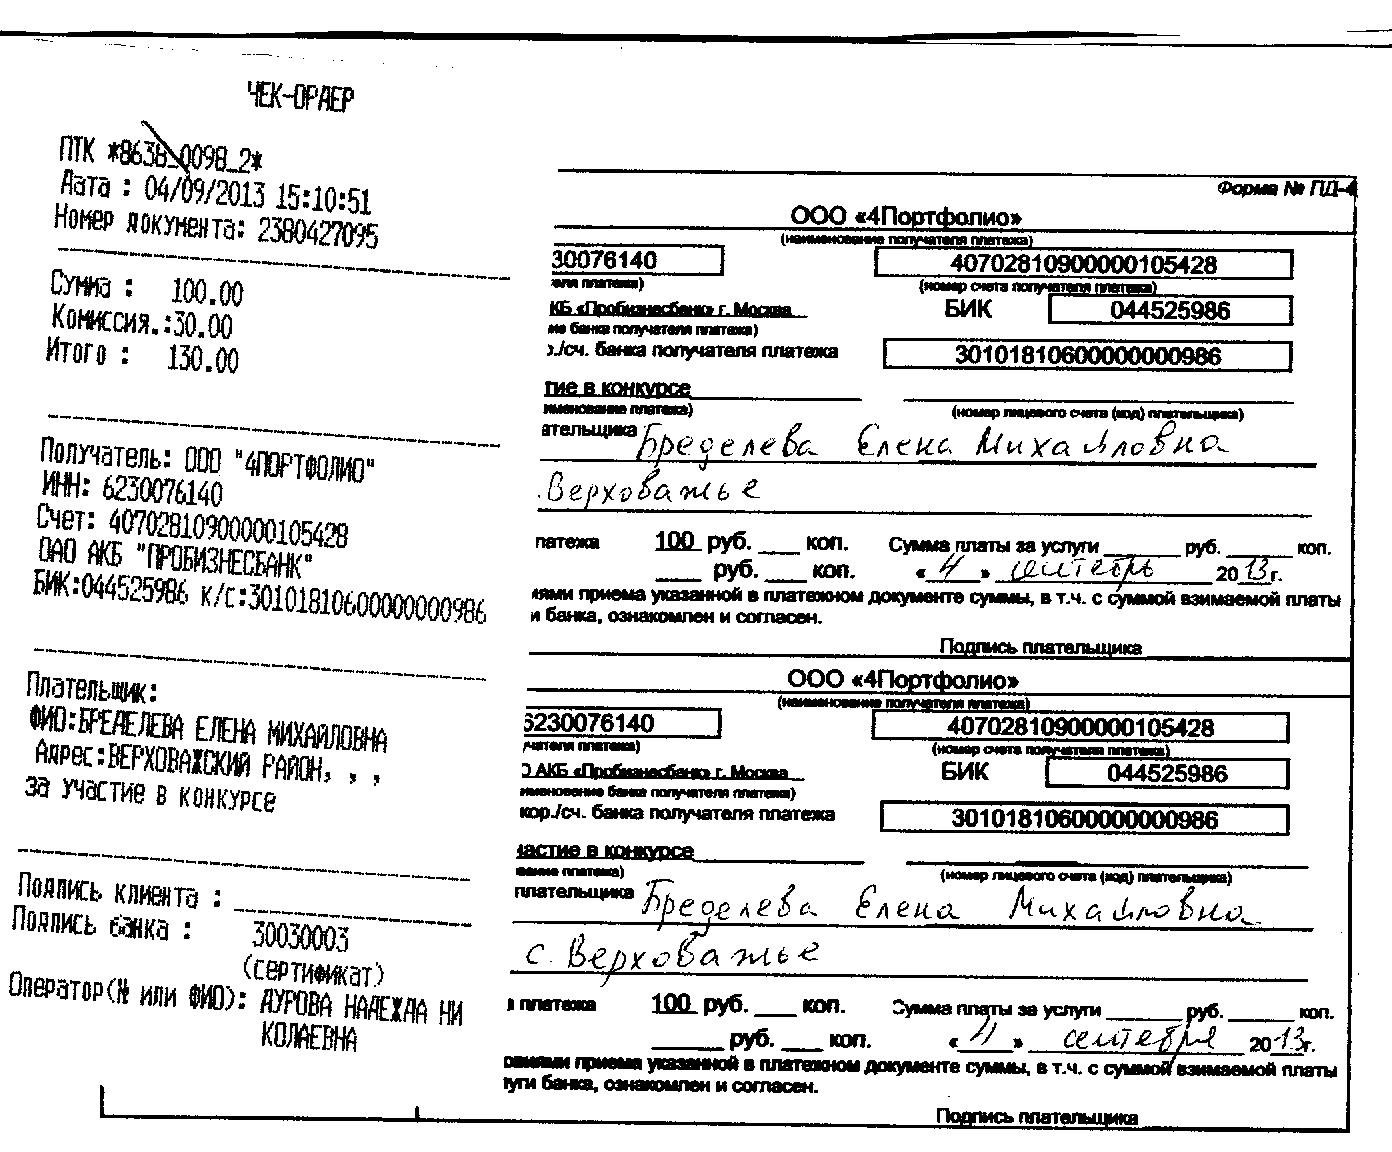 ЧЕК-ОРДЕР
ПТК *8638_0098_2*
Дата : 04/09/2013 15:10:51
Номер документа: 2380427095
Сумма : 100.00
Комиссия.:30.00
Итого : 130.00
Получатель: ООО "4ПОРТФОЛИО"
ИНН: 6230076140
Счет: 40702810900000105428
ОАО АКБ "ПРОБИЗНЕСБАНК"
БИК:044525986 к/с:30101810600000000986
Плательщик:
ФИО:БРЕДЕЛЕВА ЕЛЕНА МИХАЙЛОВНА
Адрес:ВЕРХОВАЖСКИЙ РАЙОН, , ,
за участие в конкурсе
Подпись клиента :
Подпись банка : 30030003
(сертификат)
Оператор(№ или ФИО): ДУРОВА НАДЕЖДА НИ
КОЛАЕВНА
Форма № ПД-4
ООО «4Портфолио»
(наименование получателя платежа)
30076140 40702810900000105428
еля платежа) (номер счета получателя платежа)
КБ «Пробизнесбанк» г. Москва БИК 044525986
ие банка получателя платежа)
р./сч. банка получателя платежа 30101810600000000986
тие в конкурсе
именование платежа) (номер лицевого счета (код) плательщика)
ательщика Бределева Елена Михайловна
. Верховажье
платежа 100 руб. ___ коп. Сумма платы за услуги ___ руб. ___ коп.
___ руб. ___ коп. « 4 » сентябрь 2013г.
иями приема указанной в платежном документе суммы, в т.ч. с суммой взимаемой платы
и банка, ознакомлен и согласен.
Подпись плательщика
ООО «4Портфолио»
(наименование получателя платежа)
6230076140 40702810900000105428
учателя платежа) (номер счета получателя платежа)
О АКБ «Пробизнесбанк» г. Москва БИК 044525986
именование банка получателя платежа)
кор./сч. банка получателя платежа 30101810600000000986
частие в конкурсе
вание платежа) (номер лицевого счета (код) плательщика)
плательщика Бределева Елена Михайловна
с. Верховажье
а платежа 100 руб. ___ коп. Сумма платы за услуги ___ руб. ___ коп.
___ руб. ___ коп. « 4 » сентября 2013г.
овиями приема указанной в платежном документе суммы, в т.ч. с суммой взимаемой платы
луги банка, ознакомлен и согласен.
Подпись плательщика